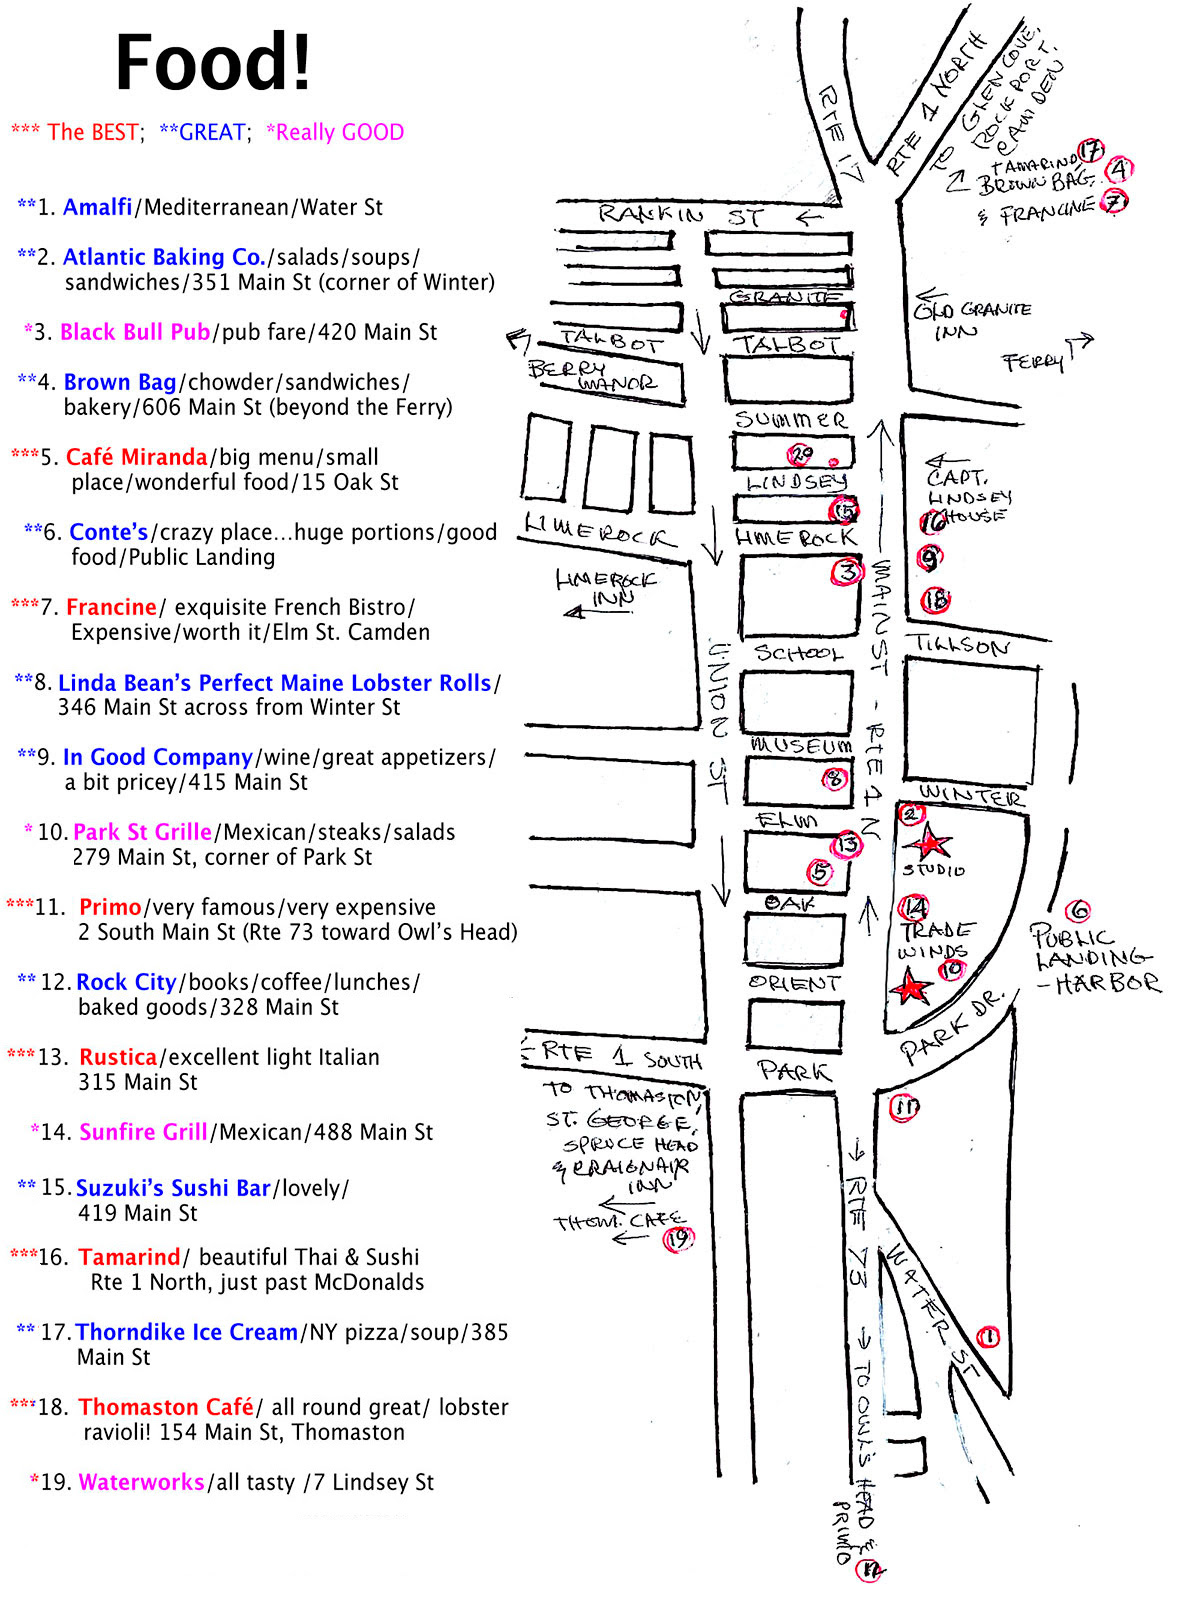 Food!
*** The BEST; **GREAT; *Really GOOD
**1. Amalfi/Mediterranean/Water St
**2. Atlantic Baking Co./salads/soups/
sandwiches/351 Main St (corner of Winter)
*3. Black Bull Pub/pub fare/420 Main St
**4. Brown Bag/chowder/sandwiches/
bakery/606 Main St (beyond the Ferry)
***5. Café Miranda/big menu/small
place/wonderful food/15 Oak St
**6. Conte's/crazy place...huge portions/good
food/Public Landing
***7. Francine/ exquisite French Bistro/
Expensive/worth it/Elm St. Camden
**8. Linda Bean's Perfect Maine Lobster Rolls/
346 Main St across from Winter St
**9. In Good Company/wine/great appetizers/
a bit pricey/415 Main St
* 10. Park St Grille/Mexican/steaks/salads
279 Main St, corner of Park St
***11. Primo/very famous/very expensive
2 South Main St (Rte 73 toward Owl's Head)
** 12. Rock City/books/coffee/lunches/
baked goods/328 Main St
***13. Rustica/excellent light Italian
315 Main St
*14. Sunfire Grill/Mexican/488 Main St
** 15. Suzuki's Sushi Bar/lovely/
419 Main St
***16. Tamarind/ beautiful Thai & Sushi
Rte 1 North, just past McDonalds
** 17. Thorndike Ice Cream/NY pizza/soup/385
Main St
***18. Thomaston Café/ all round great/ lobster
ravioli! 154 Main St, Thomaston
*19. Waterworks/all tasty /7 Lindsey St
RTE 17
RTE 1 NORTH
TO GLEN COVE,
ROCKPORT,
CAMDEN
TAMARIND 17
BROWN BAG, 4
& FRANCINE 7
RANKIN ST
GRANITE
OLD GRANITE
INN
TALBOT
TALBOT
FERRY
BERRY
MANOR
SUMMER
LINDSEY
CAPT.
LINDSEY
HOUSE
15
LIMEROCK
LIMEROCK
9
3
18
LIMEROCK
INN
MAIN ST - RTE 1 N
UNION ST
SCHOOL
TILLSON
MUSEUM
8
WINTER
2
ELM
STUDIO
13
5
OAK
14
TRADE
WINDS
10
6
PUBLIC
LANDING
-HARBOR
ORIENT
PARK DR.
RTE 1 SOUTH
PARK
11
TO THOMASTON,
ST. GEORGE,
SPRUCE HEAD
& CRAIGNAIR
INN
THOM. CAFE
19
RTE 73
WATER ST
1
TO OWL'S HEAD &
PRIMO